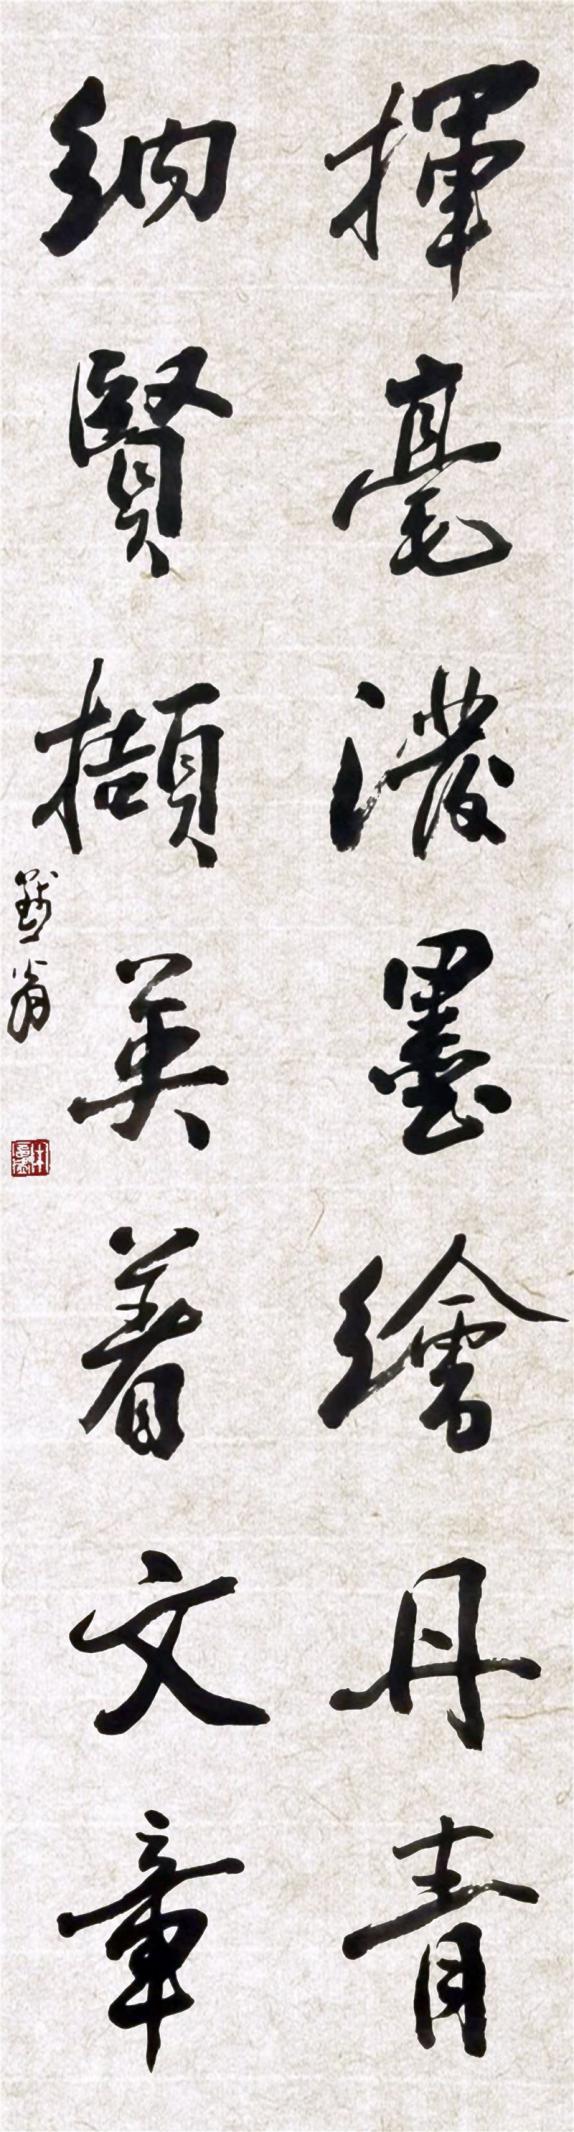 揮毫濃墨繪丹青
納賢擷英着文章